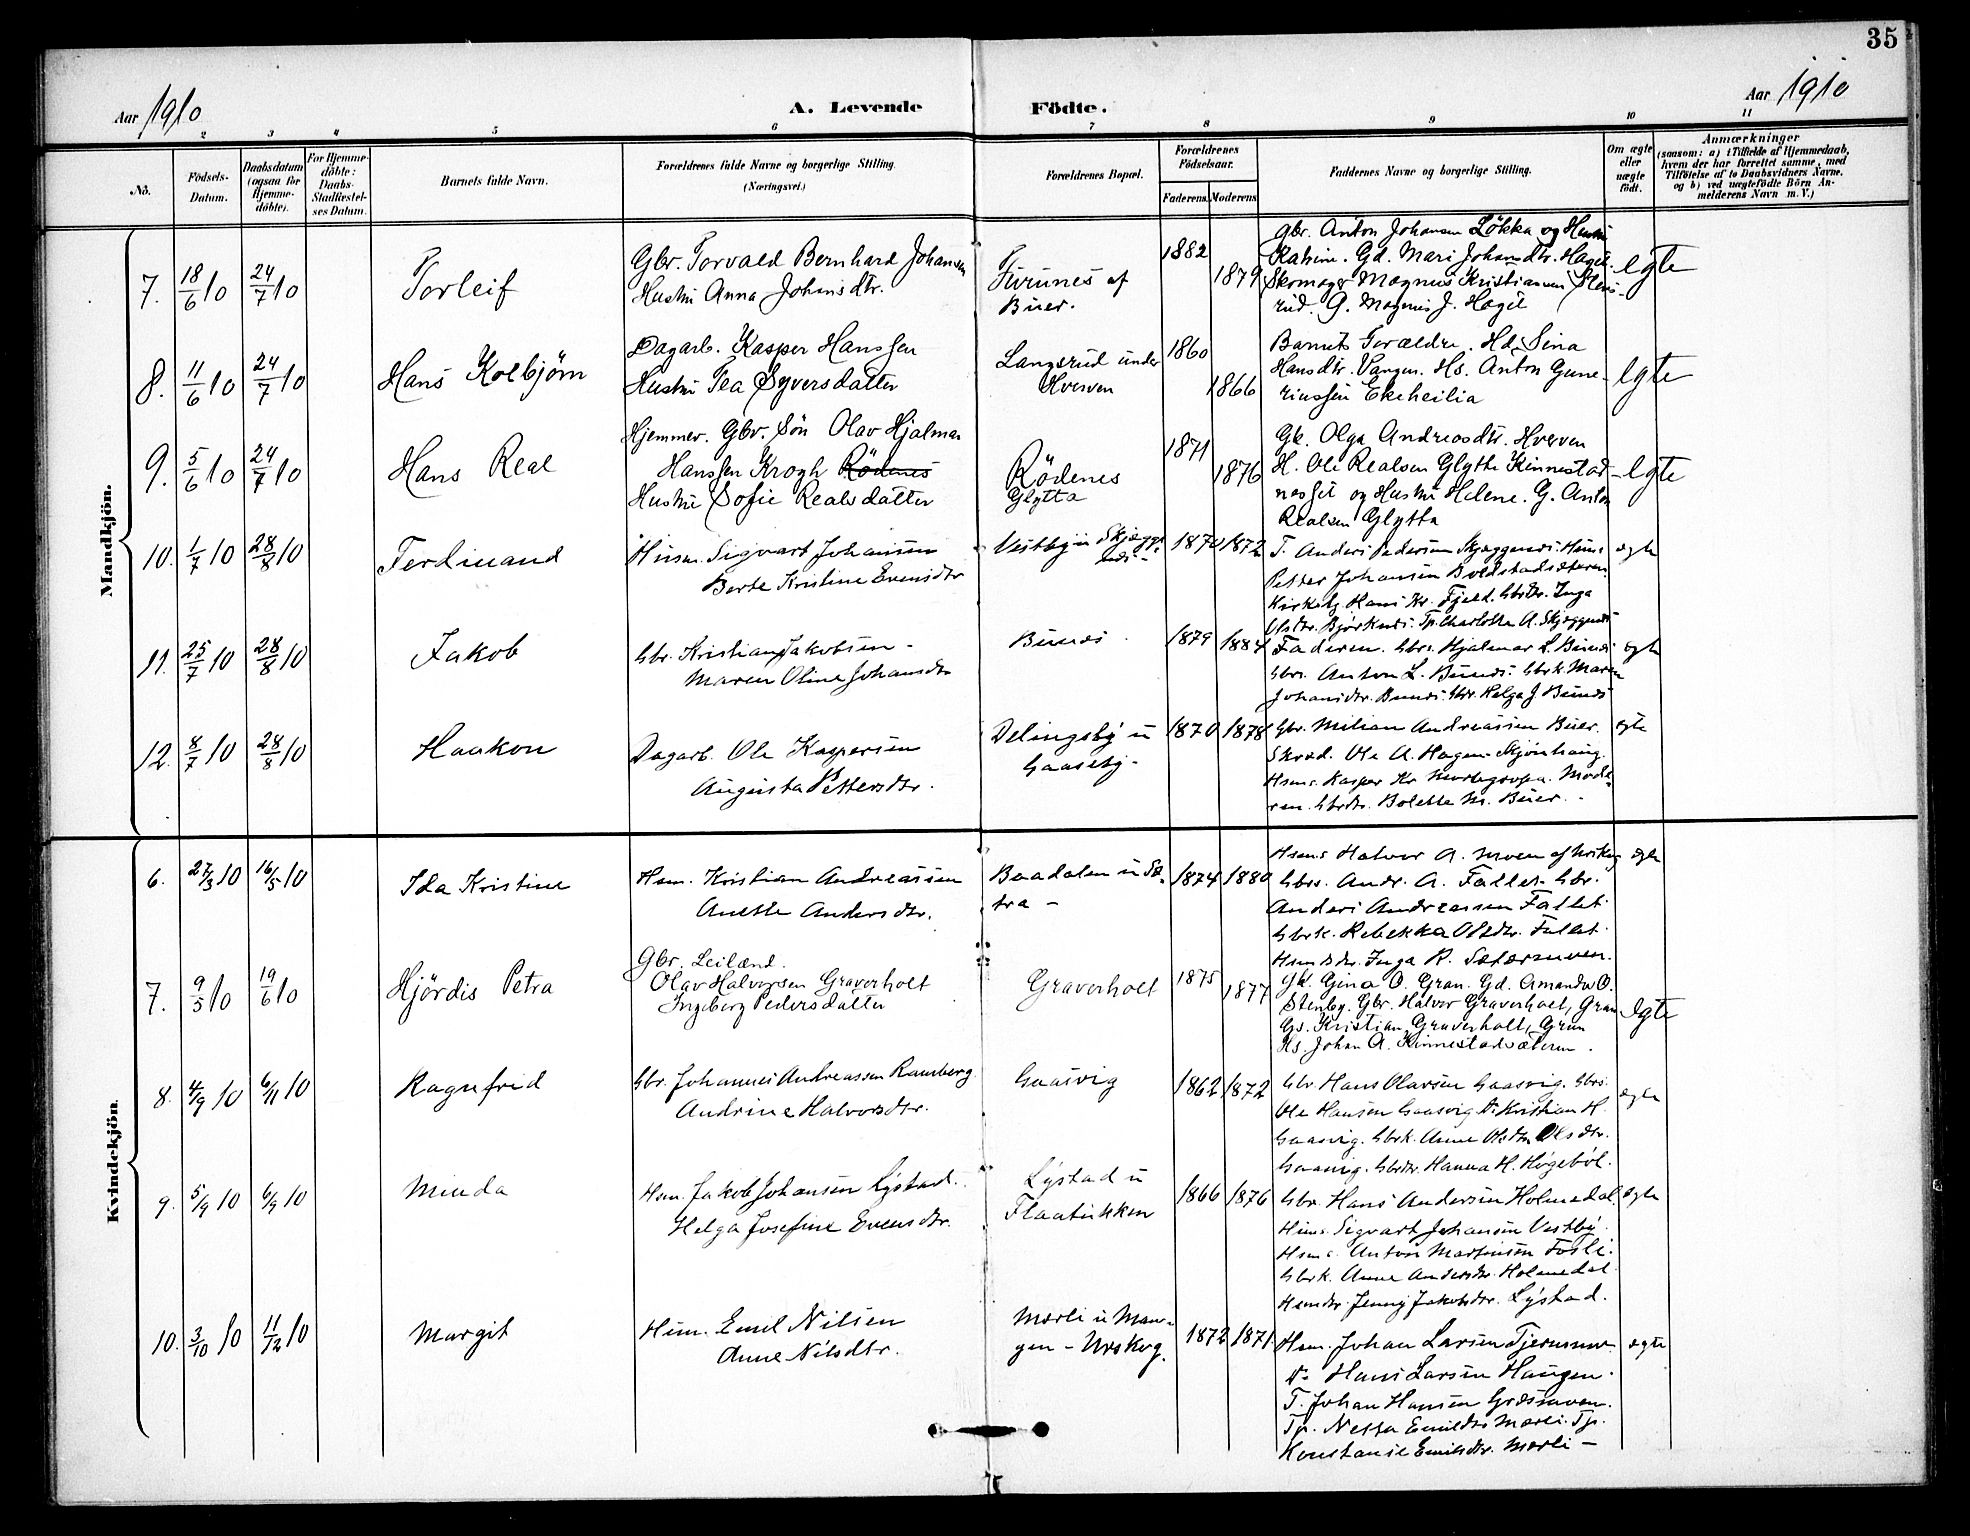 35
Aar 1910
A. Levende Födte.
Aar 1910
2 3 4 5 6 7 8 9 10 11
No.
Födsels-Datum.
Daabsdatum (ogsaa for Hjemme-döbte).
For Hjemme-döbte: Daabs-Stadfæstel-ses Datum.
Barnets fulde Navn.
Forældrenes fulde Navne og borgerlige Stilling.
(Næringsvei.)
Forældrenes Bopæl.
Forældrenes Födselsaar.
Faderens. Moderens.
Faddernes Navne og borgerlige Stilling.
Om ægte eller uægte födt.
Anmærkninger
(saasom: a) i Tilfælde af Hjemmedaab, hvem der har forrettet samme, med Tilföielse af to Daabsvidners Navne, og b) ved uægtefödte Börn An-melderens Navn m. V.)
Mandkjön.
7. 18/6 10 24/7 10
Torleif
Gbr. Torvald Bernhard Johansen
Hustru Anna Johansdtr.
Furunes af
Buer.
1882 1879
Gbr. Anton Johansen Lökka og Hustru
Katrine. Gd. Mari Johansdtr. Hagil.
Skomager Magnus Kristiansen Stens-
rud. G. Magnus J. Hagil
Egte
8. 11/6 10 24/7 10
Hans Kolbjörn
Dagarb. Kasper Hanssen
Hustru Tea Syversdatter
Langsrud under
Hverven
1860 1866
Barnets Forældre. Hd. Sina
Hansdtr. Vangen. Hs. Anton Gune-
riussen Ekeheilia
Egte
9. 5/6 10 24/7 10
Hans Real
Hjemmev. Gbr. Sön Olav Hjalmar
Hanssen Krogh Rödenes
Hustru Sofie Realsdatter
Rödenes
Glytta
1871 1876
Gk. Olga Andreasdtr. Hverven
H. Ole Realsen Glytte Kinnestad-
og Hustru Helene. G. Anton
Realsen Glytta
Egte
10. 1/7 10 28/8 10
Ferdinand
Husm. Sigvart Johansen
Berte Kristine Evensdtr
Vestby u Skjægge-
næs -
1870 1872
T. Anders Pedersen Skjæggenæs. Hsms.
Petter Johansen Boldstadsæteren.
Kirketj. Hans Kr. Fjeld. Gbrdtr. Inga
Olsdtr. Björknes. Tp. Charlotte A. Skjæggenæs
egte
11. 25/7 10 28/8 10
Jakob
Gbr. Kristian Jakobsen -
Maren Oline Johansdtr
Bunæs.
1879 1884
Faderen. Gbrs. Hjalmar L. Bunæs
Gbrs. Anton L. Bunæs. Gbrk. Maren
Johansdtr. Bunæs. Gbr. Helga J. Bunæs
egte
12. 8/7 10 28/8 10
Haakon
Dagarb. Ole Kaspersen
Augusta Pettersdtr.
Delingsby u
Gaaseby-
1870 1878
Gbr. Milian Andreassen Buer.
Skræd. Ole A. Hagen - Skjönhaug.
Hsms. Kasper Kr. Mode-
ren. Gbrdtr. Bolette M. Buer. -
egte
Kvindekjön.
6. 27/3 10 16/5 10
Ida Kristine
Hsm. Kristian Andreassen
Anette Andersdtr.
Baadalen u Sæ-
tra -
1874 1880
Hsms Halvor A. Moen af Urskog
Gbrs. Andr. A. Fallet. Gbr.
Anders Andreassen Fallet.
Gbrk. Rebekka Olsdtr. Fallet.
Hsmsdtr. Inga R. Sætermoen.
egte
7. 9/5 10 19/6 10
Hjördis Petra
Gbr. Leilænd.
Olav Halvorsen Graverholt
Ingeborg Pedersdatter
Graverholt
1875 1877
Gk. Gina O. Gran. Gd. Amanda O.
Stenby. Gbr. Halvor Graverholt, Gran
Gs. Kristian Graverholt, Gran
Hs. Johan A. Kinnestadsæteren.
Egte
8. 4/9 10 6/11 10
Ragnfrid
Gbr. Johannes Andreassen Ramberg.
Andrine Halvorsdtr.
Gaasvig
1862 1872
Gbr Hans Olavsen Gaasvig. Gbrs.
Ole Hansen Gaasvig. Do Kristian H.
Gaasvig. Gbrk. Anne Olsdtr. Olsdtr.
Gaasvig. Gbrdtr. Hanna H. Högeböl.
egte
9. 5/9 10 6/9 10
Minda
Hsm. Jakob Johansen Lystad.
Helga Josefine Evensdtr.
Lystad u
Flaatukken
1866 1876
Gbr. Hans Andersen Holmedal.
Hsms. Sigvart Johansen Vestby.
Hsms. Anton Martinsen Fosli.
Gbrk. Anne Andersdtr. Holmedal
Hsmdtr. Jenny Jakobsdtr. Lystad.
egte
10. 3/10 10 11/12 10
Margit
Hsm. Emil Nilsen
Anne Nilsdtr.
Mærli u Man-
gen - Urskog.
1872 1871
Hsm. Johan Larsen Tjernmo
Do Hans Larsen Haugen.
T. Johan Hansen Græsmoen.
Tp. Netta Emilsdtr Mærli. Tp.
Konstanse Emilsdtr. Mærli -
egte